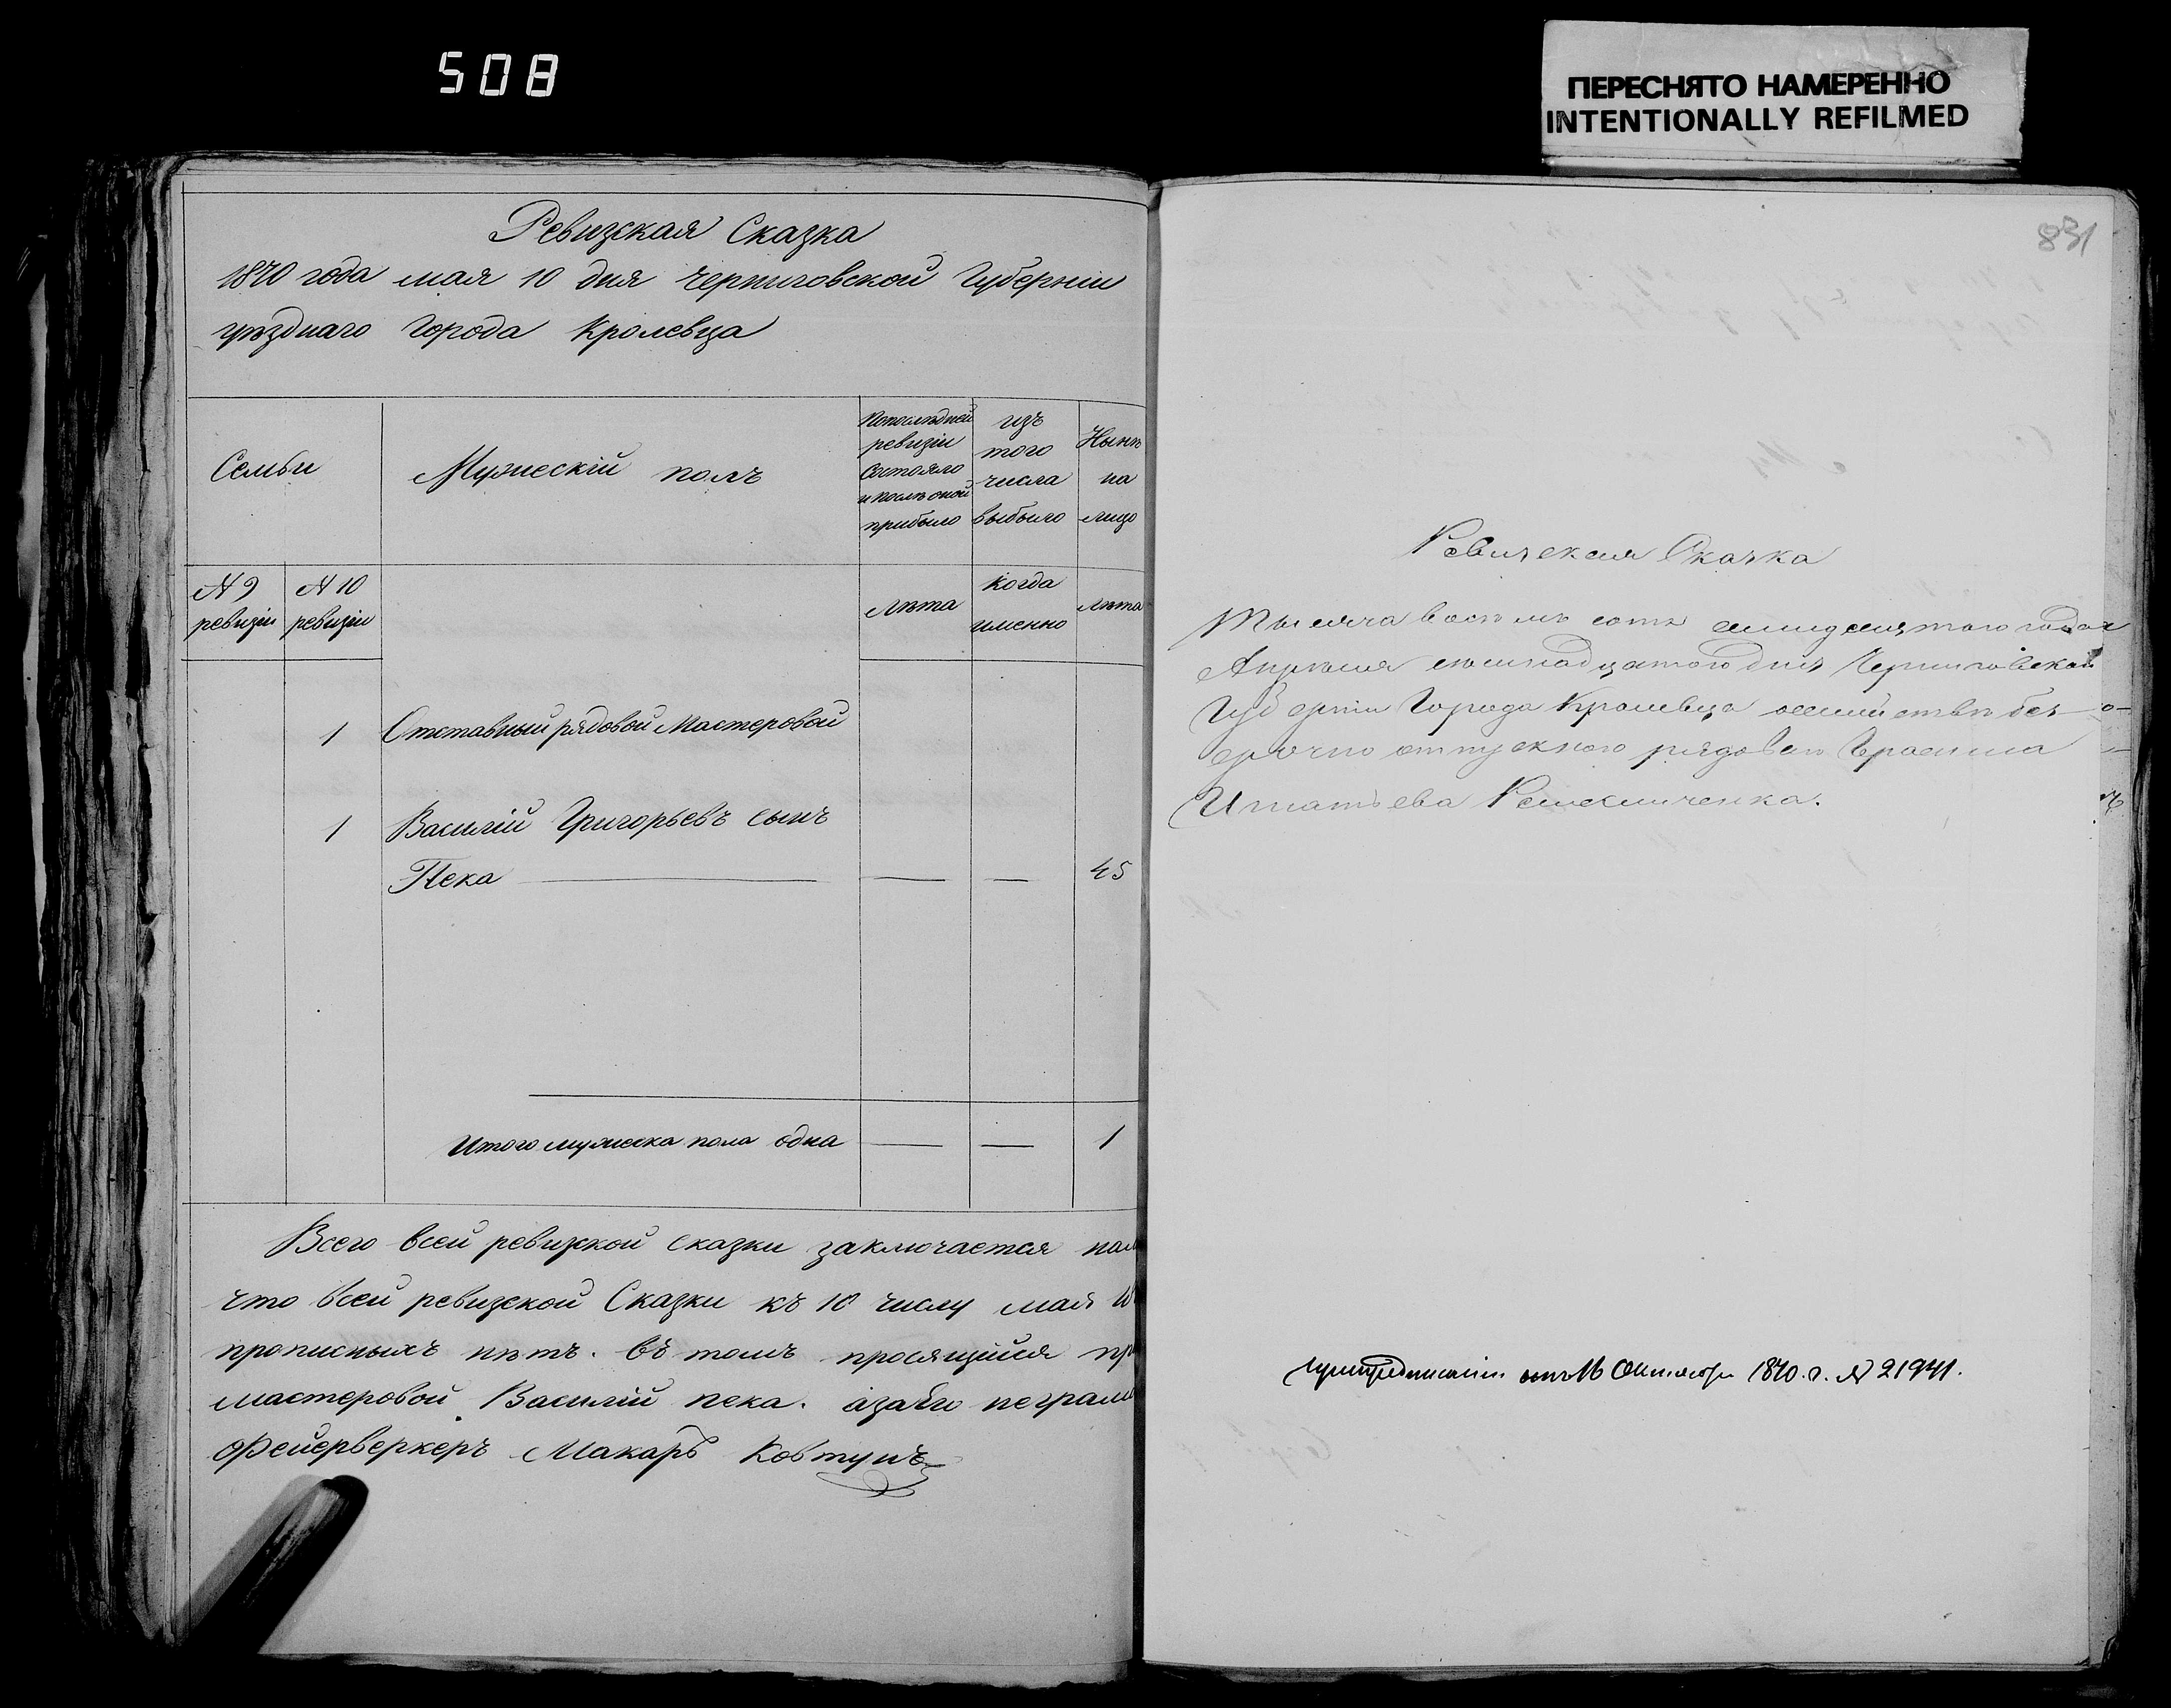 508
ПЕРЕСНЯТО НАМЕРЕННО
INTENTIONALLY REFILMED
Ревизская Сказка
1870 года мая 10 дня Черниговской Губерніи
уѣзднаго Города Кролевца
Семьи
Мужескій полъ
По послѣдней ревизіи Состояло и послѣ оной прибыло
изъ того числа выбыло
Нынѣ на лицо
№ 9 ревизіи
№ 10 ревизіи
лѣта
когда именно
лѣта
1 Отставный рядовой Мастеровой
1 Василій Григорьевъ сынъ
Пека — — — 45
Итого мужеска пола одна — — 1
Всего всей ревизкой сказки заключается
что всей ревизской Сказки къ 10 числу мая
прописныхъ нѣтъ. въ томъ просящійся
мастеровой Василій пека.
Фейерверкеръ Макаръ Ковтунъ
831
Ревизская Сказка
Тысяча восемь сотъ семидесятого года
Апрѣля семнадцатого дня Черниговской
Губерніи Города Кролевца о семействѣ без
срочно отпускного рядового Герасима
Игнатьева
отъ 16 Октября 1870. г. № 21941.